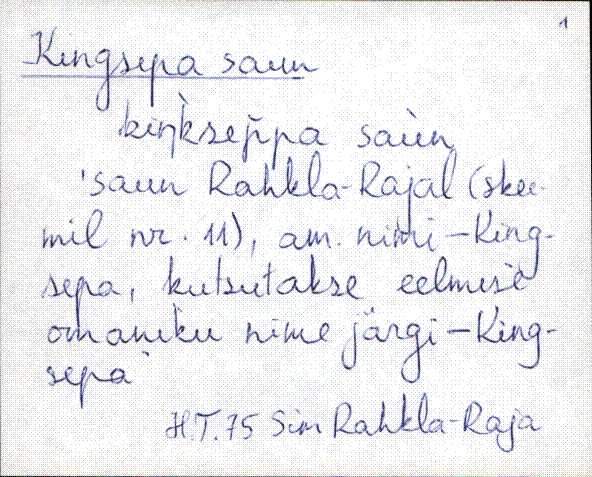 1
Kingsepa saun
kiŋ̀ksep̆pa saùn
'saun Rahkla-Rajal (skee-
mil nr. 11), am. nimi - King-
sepa, kutsutakse eelmise
omaniku nime järgi - King-
sepa'
H.T. 75 Sim Rahkla-Raja